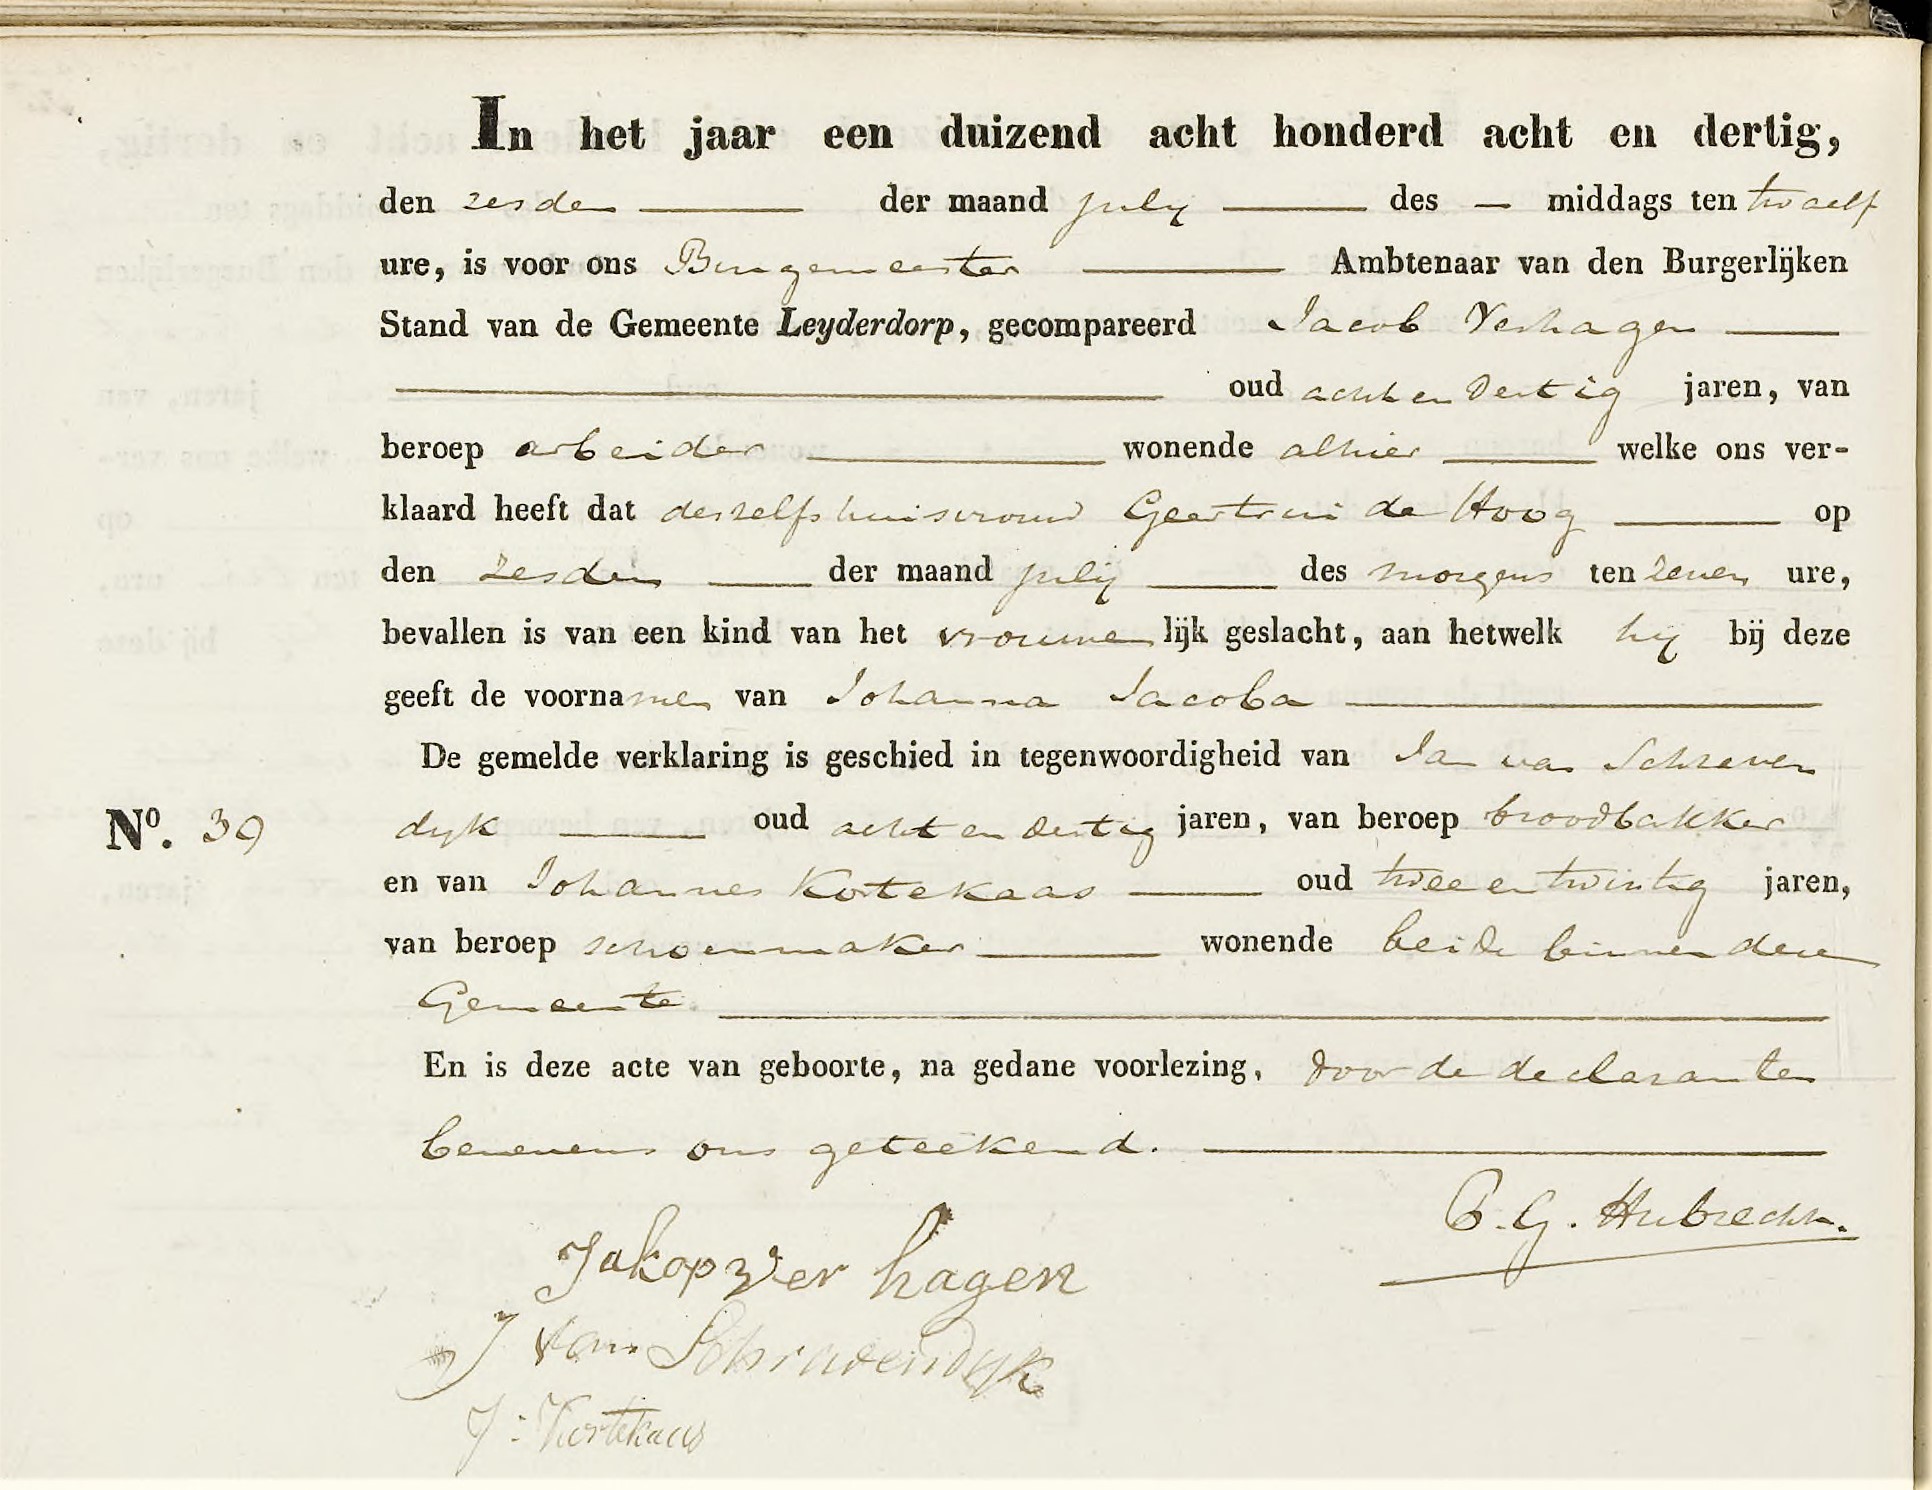 In het jaar een duizend acht honderd acht en dertig,
den zesden der maand july des middags ten twaelf
ure, is voor ons Burgemeester Ambtenaar van den Burgerlijken
Stand van de Gemeente Leyderdorp, gecompareerd Jacob Verhagen
oud acht en dertig jaren, van
beroep arbeider wonende alhier welke ons ver-
klaard heeft dat deszelfs huisvrouw Geertrui de Hoog op
den zesden der maand july des morgens ten zeven ure,
bevallen is van een kind van het vrouwelijk geslacht, aan hetwelk hy bij deze
geeft de voornamen van Johanna Jacoba
De gemelde verklaring is geschied in tegenwoordigheid van Jan van Schraven
No. 39 dyk oud acht en dertig jaren, van beroep broodbakker
en van Johannes Kortekaas oud twee en twintig jaren,
van beroep schoenmaker wonende beide binnen deze
Gemeente.
En is deze acte van geboorte, na gedane voorlezing, door de declaranten
benevens ons geteekend.
C. G. Hubrecht.
Jakop ver hagen
J van Schravendyk
J: Kortekaas